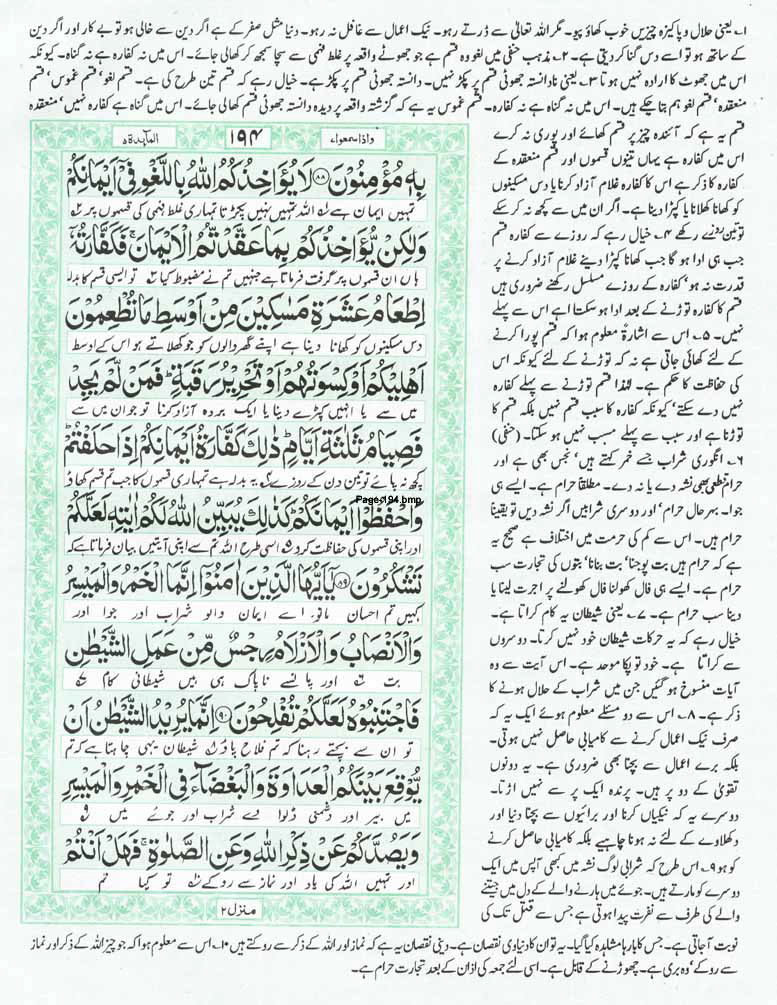 ۱۔ یعنی حلال و پاکیزہ چیزیں خوب کھاؤ پیو۔ مگر اللہ تعالیٰ سے ڈرتے رہو۔ نیک اعمال سے غافل نہ رہو۔ دنیا مثل صفر کے ہے اگر دین سے خالی ہو تو بے کار اور اگر دین
کے ساتھ ہو تو اسے دس گنا کر دیتی ہے۔ ۲۔ مذہب حنفی میں لغو وہ قسم ہے جو جھوٹے واقعہ پر غلط فہمی سے سچا سمجھ کر کھالی جائے۔ اس میں نہ کفارہ ہے نہ گناہ۔ کیونکہ
اس میں جھوٹ کا ارادہ نہیں ہوتا ۳۔ یعنی نادانستہ جھوٹی قسم پر پکڑ نہیں۔ دانستہ جھوٹی قسم پر پکڑ ہے۔ خیال رہے کہ قسم تین طرح کی ہے۔ قسم لغو، قسم غموس، قسم
منعقدہ، قسم لغو ہم بتا چکے ہیں۔ اس میں نہ گناہ ہے نہ کفارہ۔ قسم غموس یہ ہے کہ گزشتہ واقعہ پر دیدہ دانستہ جھوٹی قسم کھالی جائے۔ اس میں گناہ ہے کفارہ نہیں، منعقدہ
قسم یہ ہے کہ آئندہ چیز پر قسم کھائے اور پوری نہ کرے
اس میں کفارہ ہے یہاں تینوں قسموں اور قسم منعقدہ کے
کفارہ کا ذکر ہے اس کا کفارہ غلام آزاد کرنا یا دس مسکینوں
کو کھانا کھلانا یا کپڑا دینا ہے۔ اگر ان میں سے کچھ نہ کر سکے
تو تین روزے رکھے ۴۔ خیال رہے کہ روزے سے کفارہ قسم
جب ہی ادا ہو گا جب کھانا کپڑا دینے غلام آزاد کرنے پر
قدرت نہ ہو، کفارہ کے روزے مسلسل رکھنے ضروری ہیں
قسم کا کفارہ توڑنے کے بعد ادا ہو سکتا ہے اس سے پہلے
نہیں۔ ۵۔ اس سے اشارۃً معلوم ہوا کہ قسم پورا کرنے
کے لئے کھائی جاتی ہے نہ کہ توڑنے کے لئے کیونکہ اس
کی حفاظت کا حکم ہے۔ لہٰذا قسم توڑنے سے پہلے کفارہ
نہیں دے سکتے، کیونکہ کفارہ کا سبب قسم نہیں بلکہ قسم کا
توڑنا ہے اور سبب سے پہلے مسبب نہیں ہو سکتا۔ (حنفی)
۶۔ انگوری شراب جسے خمر کہتے ہیں، نجس بھی ہے اور
حرام قطعی بھی نشہ دے یا نہ دے۔ مطلقاً حرام ہے۔ ایسے ہی
جوا۔ بہر حال حرام، اور دوسری شرابیں اگر نشہ دیں تو یقیناً
حرام ہیں۔ اس سے کم کی حرمت میں اختلاف ہے صحیح یہ
ہے کہ حرام ہیں بت پوجنا، بت بنانا، بتوں کی تجارت سب
حرام ہے۔ ایسے ہی فال کھولنا فال کھولنے پر اجرت لینا یا
دینا سب حرام ہے۔ ۷۔ یعنی شیطان یہ کام کراتا ہے۔
خیال رہے کہ یہ حرکات شیطان خود نہیں کرتا۔ دوسروں
سے کراتا ہے۔ خود تو پکا موحد ہے۔ اس آیت سے وہ
آیات منسوخ ہو گئیں جن میں شراب کے حلال ہونے کا
ذکر ہے۔ ۸۔ اس سے دو مسئلے معلوم ہوئے ایک یہ کہ
صرف نیک اعمال کرنے سے کامیابی حاصل نہیں ہوتی۔
بلکہ برے اعمال سے بچنا بھی ضروری ہے۔ یہ دونوں
تقویٰ کے دو پر ہیں۔ پرندہ ایک پر سے نہیں اڑتا۔
دوسرے یہ کہ نیکیاں کرنا اور برائیوں سے بچنا دنیا اور
دکھلاوے کے لئے نہ ہونا چاہیے بلکہ کامیابی حاصل کرنے
کو ہو ۹۔ اس طرح کہ شرابی لوگ نشہ میں کبھی آپس میں ایک
دوسرے کو مارتے ہیں۔ جوئے میں ہارنے والے کے دل میں جیتنے
والے کی طرف سے نفرت پیدا ہوتی ہے جس سے قتل تک کی
نوبت آجاتی ہے۔ جس کا بارہا مشاہدہ کیا گیا۔ یہ تو ان کا دنیاوی نقصان ہے۔ دینی نقصان یہ ہے کہ نماز اور اللہ کے ذکر سے روکتے ہیں ۱۰۔ اس سے معلوم ہوا کہ جو چیز اللہ کے ذکر اور نماز
سے روکے، وہ بری ہے۔ چھوڑنے کے قابل ہے۔ اسی لئے جمعہ کی اذان کے بعد تجارت حرام ہے۔
واذا سمعوا۷ ۱۹۴ المآئدة۵
بِهٖ مُؤْمِنُوْنَ ۸۸ لَا يُؤَاخِذُكُمُ اللّٰهُ بِاللَّغْوِ فِیْۤ اَيْمَانِكُمْ
تمہیں ایمان ہے اللہ تمہیں نہیں پکڑتا تمہاری غلط فہمی کی قسموں پر
وَلٰكِنْ يُّؤَاخِذُكُمْ بِمَا عَقَّدْتُّمُ الْاَيْمَانَ ۚ فَكَفَّارَتُهٗۤ
ہاں ان قسموں پر گرفت فرماتا ہے جنہیں تم نے مضبوط کیا تو ایسی قسم کا بدلہ
اِطْعَامُ عَشَرَةِ مَسٰكِيْنَ مِنْ اَوْسَطِ مَا تُطْعِمُوْنَ
دس مسکینوں کو کھانا دینا ہے اپنے گھر والوں کو جو کھلاتے ہو اس کے اوسط
اَهْلِيْكُمْ اَوْ كِسْوَتُهُمْ اَوْ تَحْرِيْرُ رَقَبَةٍ ؕ فَمَنْ لَّمْ يَجِدْ
میں سے یا انہیں کپڑے دینا یا ایک بردہ آزاد کرنا تو جو ان میں سے
فَصِيَامُ ثَلٰثَةِ اَيَّامٍ ؕ ذٰلِكَ كَفَّارَةُ اَيْمَانِكُمْ اِذَا حَلَفْتُمْ ؕ
کچھ نہ پائے تو تین دن کے روزے یہ بدلہ ہے تمہاری قسموں کا جب تم قسم کھاؤ
Page-194.bmp
وَاحْفَظُوْۤا اَيْمَانَكُمْ ؕ كَذٰلِكَ يُبَيِّنُ اللّٰهُ لَكُمْ اٰيٰتِهٖ لَعَلَّكُمْ
اور اپنی قسموں کی حفاظت کرو اسی طرح اللہ تم سے اپنی آیتیں بیان فرماتا ہے کہ
تَشْكُرُوْنَ ۸۹ يٰۤاَيُّهَا الَّذِيْنَ اٰمَنُوْۤا اِنَّمَا الْخَمْرُ وَالْمَيْسِرُ
کہیں تم احسان مانو اے ایمان والو شراب اور جوا اور
وَالْاَنْصَابُ وَالْاَزْلَامُ رِجْسٌ مِّنْ عَمَلِ الشَّيْطٰنِ
بت اور پانسے ناپاک ہی ہیں شیطانی کام
فَاجْتَنِبُوْهُ لَعَلَّكُمْ تُفْلِحُوْنَ ۹۰ اِنَّمَا يُرِيْدُ الشَّيْطٰنُ اَنْ
تو ان سے بچتے رہنا کہ تم فلاح پاؤ شیطان یہی چاہتا ہے کہ تم
يُّوْقِعَ بَيْنَكُمُ الْعَدَاوَةَ وَالْبَغْضَآءَ فِی الْخَمْرِ وَالْمَيْسِرِ
میں بیر اور دشمنی ڈلوا دے شراب اور جوئے میں
وَيَصُدَّكُمْ عَنْ ذِكْرِ اللّٰهِ وَعَنِ الصَّلٰوةِ ۚ فَهَلْ اَنْتُمْ
اور تمہیں اللہ کی یاد اور نماز سے روکے تو کیا تم
منزل۲